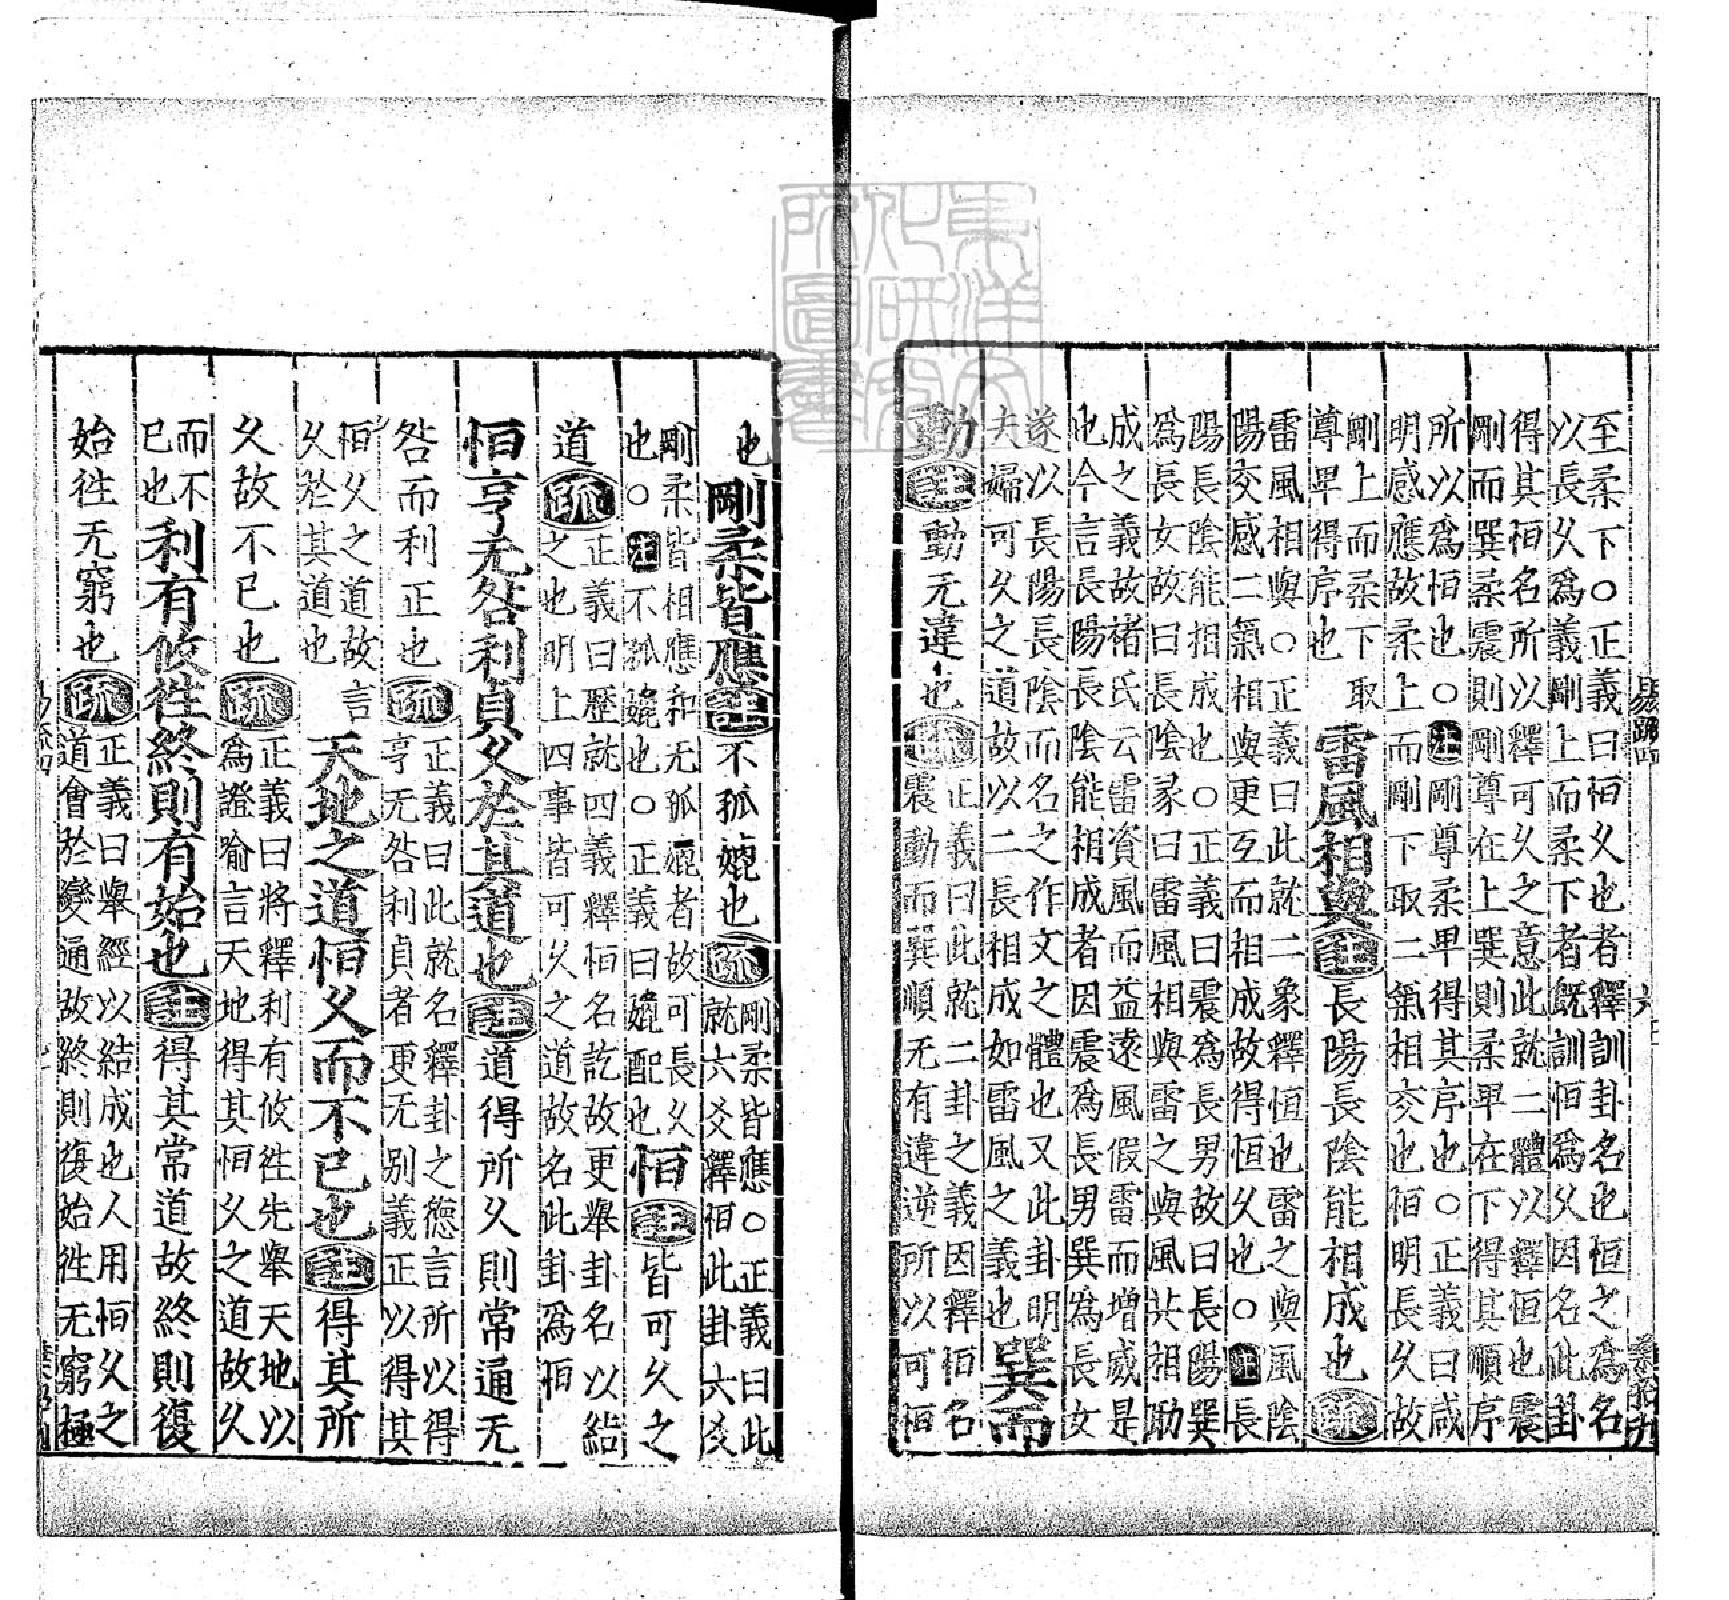 至柔下○正義曰恒久也者釋訓卦名也恒之爲名
以長久爲義剛上而柔下者旣訓恒爲久因名此卦
得其恒名所以釋可久之意此就二體以釋恒也震
剛而巽柔震則剛尊在上巽則柔卑在下得其順序
所以爲恒也○注剛尊柔卑得其序也○正義曰咸
明感應故柔上而剛下取二氣相交也恒明長久故
剛上而柔下取
尊卑得序也
雷風相與註長陽長陰能相成也疏
雷風相與○正義曰此就二象釋恒也雷之與風陰
陽交感二氣相與更互而相成故得恒久也○注長
陽長陰能相成也○正義曰震爲長男故曰長陽巽
爲長女故曰長陰彖曰雷風相與雷之與風共相助
成之義故褚氏云雷資風而益遠風假雷而增威是
也今言長陽長陰能相成者因震爲長男巽爲長女
遂以長陽長陰而名之作文之體也又此卦明
夫婦可久之道故以二長相成如雷風之義也
巽而
動註動无違也疏
正義曰此就二卦之義因釋恒名
震動而巽順无有違逆所以可恒
也剛柔皆應註不孤媲也疏
剛柔皆應○正義曰此
就六爻釋恒此卦六爻
剛柔皆相應和无孤媲者故可長久
也○注不孤媲也○正義曰媲配也
恒註皆可久之
道疏
正義曰歷就四義釋恒名訖故更舉卦名以結
之也明上四事皆可久之道故名此卦爲恒
恒亨无咎利貞久於其道也註道得所久則常通无
咎而利正也疏
正義曰此就名釋卦之德言所以得
亨无咎利貞者更无别義正以得其
恒久之道故言
久於其道也
天地之道恒久而不已也註得其所
久故不已也疏
正義曰將釋利有攸往先舉天地以
爲證喻言天地得其恒久之道故久
而不
已也
利有攸往終則有始也註得其常道故終則復
始往无窮也疏
正義曰舉經以結成也人用恒久之
道會於變通故終則復始往无窮極